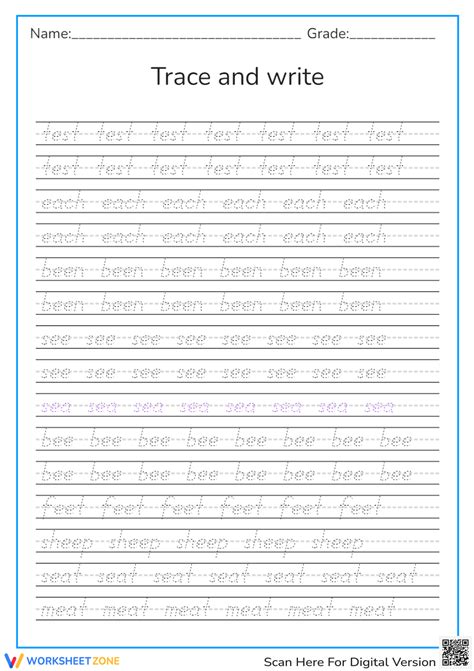 Name:______________________________ Grade:____________
Trace and write
test test test test test test test
test test test test test test test
each each each each each each
each each each each each each
been been been been been been
been been been been been been
see see see see see see see see
see see see see see see see see
sea sea sea sea sea sea sea sea
bee bee bee bee bee bee bee bee
bee bee bee bee bee bee bee bee
feet feet feet feet feet feet
sheep sheep sheep sheep sheep
seat seat seat seat seat seat seat
meat meat meat meat meat meat
WORKSHEETZONE Scan Here For Digital Version